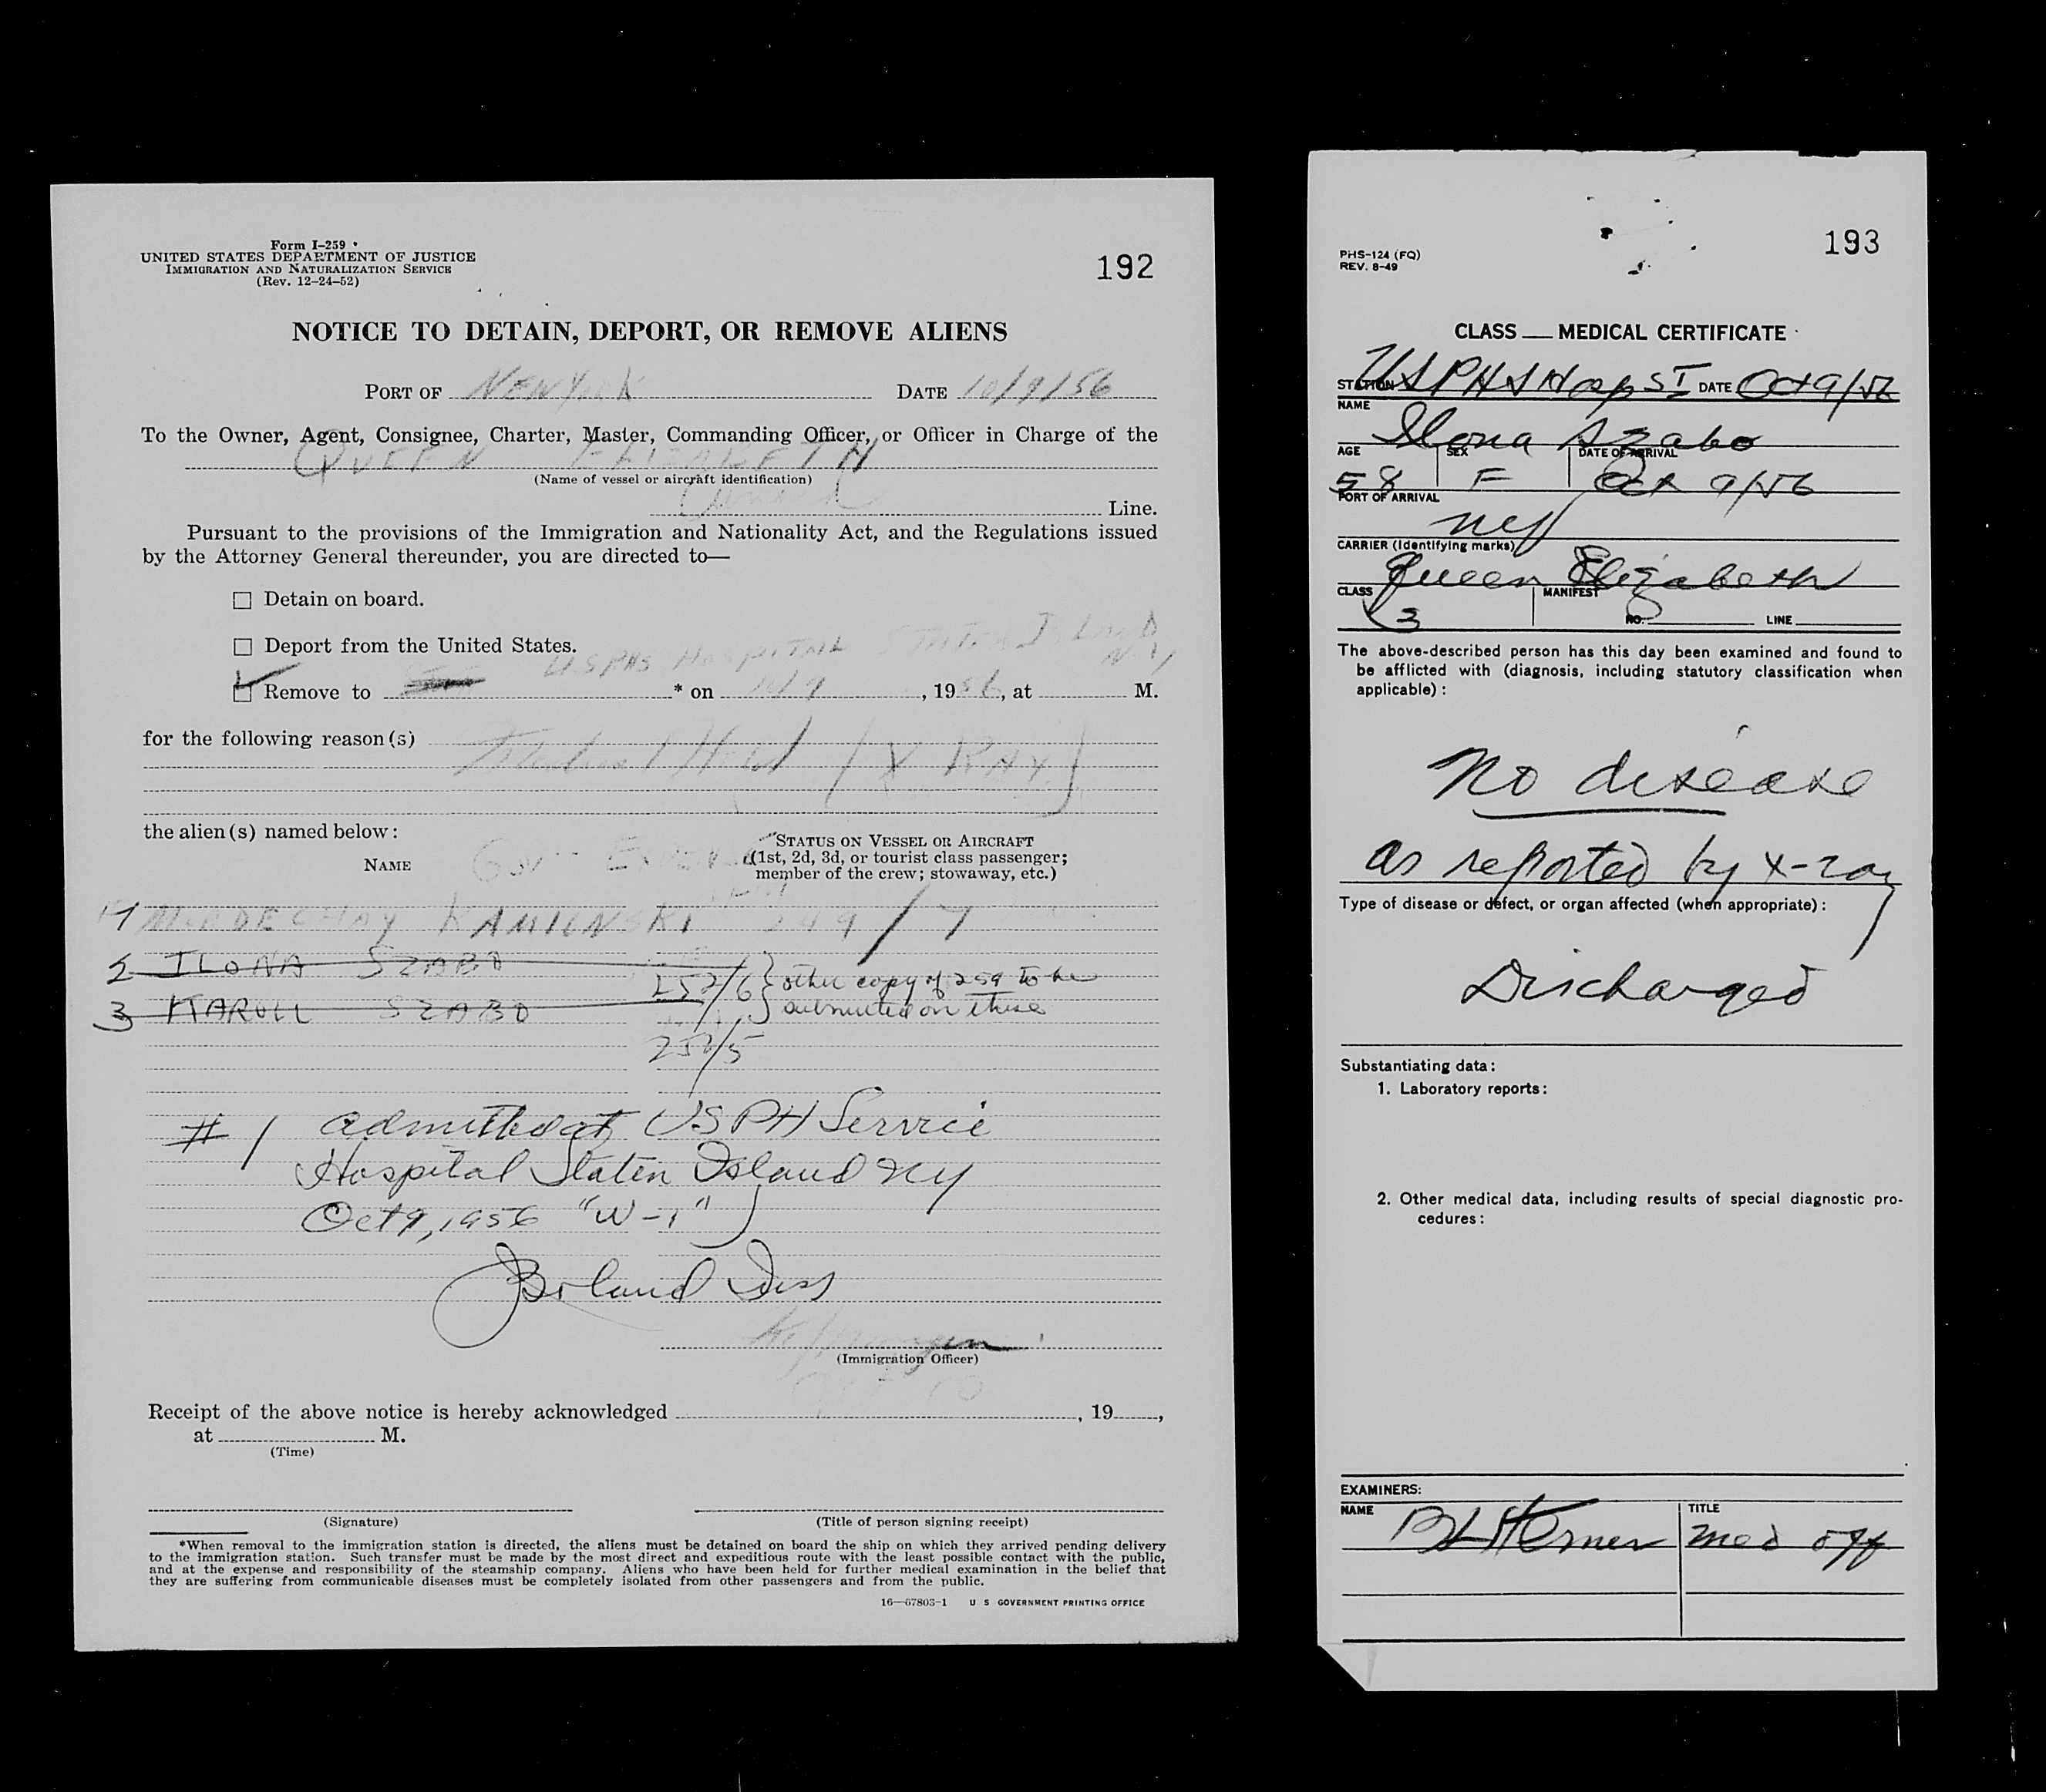 Form I-259
UNITED STATES DEPARTMENT OF JUSTICE
IMMIGRATION AND NATURALIZATION SERVICE
(Rev. 12-24-52)
192
NOTICE TO DETAIN, DEPORT, OR REMOVE ALIENS
PORT OF NEW YORK DATE 10/9/56
To the Owner, Agent, Consignee, Charter, Master, Commanding Officer, or Officer in Charge of the
QUEEN ELIZABETH
(Name of vessel or aircraft identification)
Cunard Line.
Pursuant to the provisions of the Immigration and Nationality Act, and the Regulations issued
by the Attorney General thereunder, you are directed to—
☐ Detain on board.
☐ Deport from the United States.
USPHS HOSPITAL STATEN ISLAND N.Y.
☑ Remove to * on 10/9, 1956, at M.
for the following reason(s) Hold (X RAY)
the alien(s) named below:
NAME
STATUS ON VESSEL OR AIRCRAFT
(1st, 2d, 3d, or tourist class passenger;
member of the crew; stowaway, etc.)
1 MORDECHAY KAMIENSKI 249/7
2 ILONA SZABO
252/6 } other copy of 259 to be
3 KAROLL SZABO
submitted on these
252/5
#1 admitted at USPH Service
Hospital Staten Island NY
Oct 9, 1956 "W-1"
(Immigration Officer)
Receipt of the above notice is hereby acknowledged , 19 ,
at M.
(Time)
(Signature)
(Title of person signing receipt)
*When removal to the immigration station is directed, the aliens must be detained on board the ship on which they arrived pending delivery
to the immigration station. Such transfer must be made by the most direct and expeditious route with the least possible contact with the public,
and at the expense and responsibility of the steamship company. Aliens who have been held for further medical examination in the belief that
they are suffering from communicable diseases must be completely isolated from other passengers and from the public.
16—67803-1 U S GOVERNMENT PRINTING OFFICE
193
PHS-124 (FQ)
REV. 8-49
CLASS — MEDICAL CERTIFICATE
STATION USPHS Hosp SI DATE Oct 9/56
NAME Ilona Szabo
AGE SEX DATE OF ARRIVAL
58 F Oct 9/56
PORT OF ARRIVAL
NY
CARRIER (Identifying marks)
Queen Elizabeth
CLASS MANIFEST
3 NO. LINE
The above-described person has this day been examined and found to
be afflicted with (diagnosis, including statutory classification when
applicable):
No disease
as reported by X-ray
Type of disease or defect, or organ affected (when appropriate):
Discharged
Substantiating data:
1. Laboratory reports:
2. Other medical data, including results of special diagnostic pro-
cedures:
EXAMINERS:
NAME TITLE
Med Off